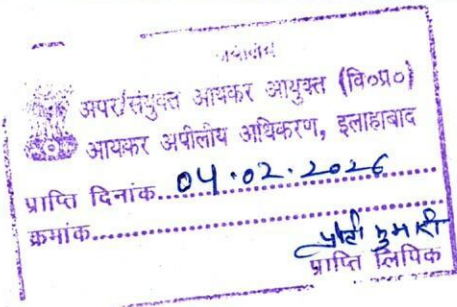 कार्यालय
अपर/संयुक्त आयकर आयुक्त (वि०प्र०)
आयकर अपीलीय अधिकरण, इलाहाबाद
प्राप्ति दिनांक..04.02.2026
क्रमांक
कुमारी
प्राप्ति लिपिक